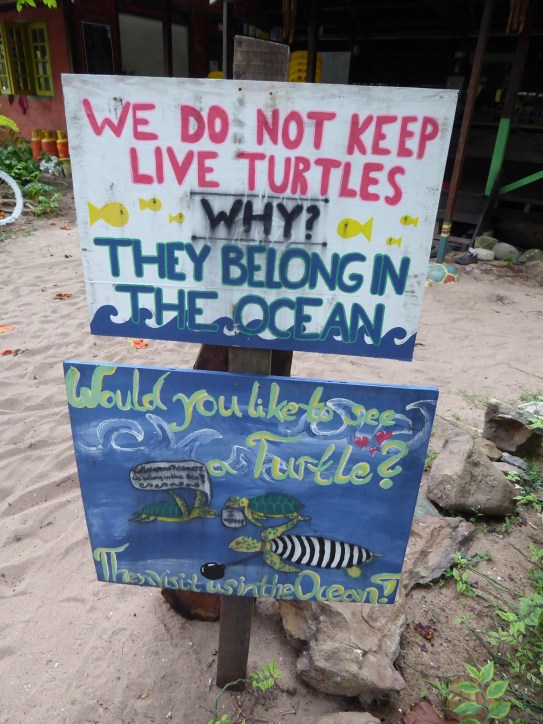 WE DO NOT KEEP
LIVE TURTLES
WHY?
THEY BELONG IN
THE OCEAN
Would you like to see
a Turtle?
We belong in the Sea!
Then visit us in the Ocean!